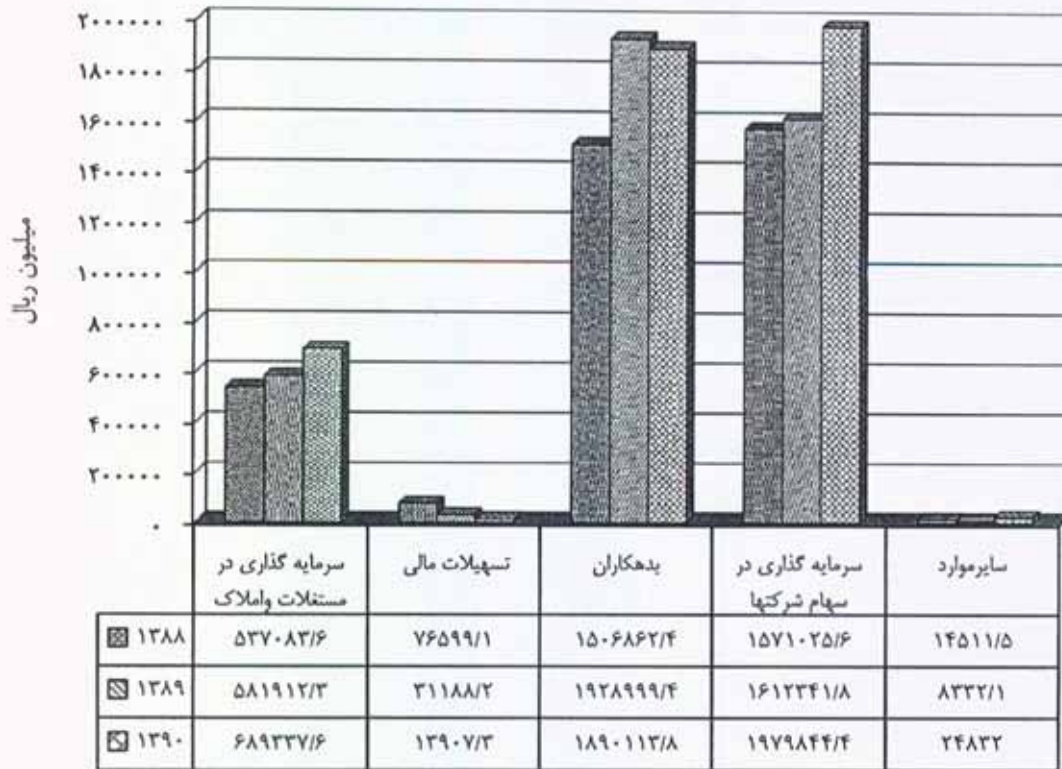 میلیون ریال
۲۰۰۰۰۰۰
۱۸۰۰۰۰۰
۱۶۰۰۰۰۰
۱۴۰۰۰۰۰
۱۲۰۰۰۰۰
۱۰۰۰۰۰۰
۸۰۰۰۰۰
۶۰۰۰۰۰
۴۰۰۰۰۰
۲۰۰۰۰۰
۰
سرمایه گذاری در مستغلات واملاک
تسهیلات مالی
بدهکاران
سرمایه گذاری در سهام شرکتها
سایرموارد
۱۳۸۸ ۵۳۷۰۸۳/۶ ۷۶۵۹۹/۱ ۱۵۰۶۸۶۲/۴ ۱۵۷۱۰۲۵/۶ ۱۴۵۱۱/۵
۱۳۸۹ ۵۸۱۹۱۲/۳ ۳۱۱۸۸/۲ ۱۹۲۸۹۹۹/۴ ۱۶۱۲۳۴۱/۸ ۸۳۳۲/۱
۱۳۹۰ ۶۸۹۳۳۷/۶ ۱۳۹۰۷/۳ ۱۸۹۰۱۱۳/۸ ۱۹۷۹۸۴۴/۴ ۲۴۸۳۲